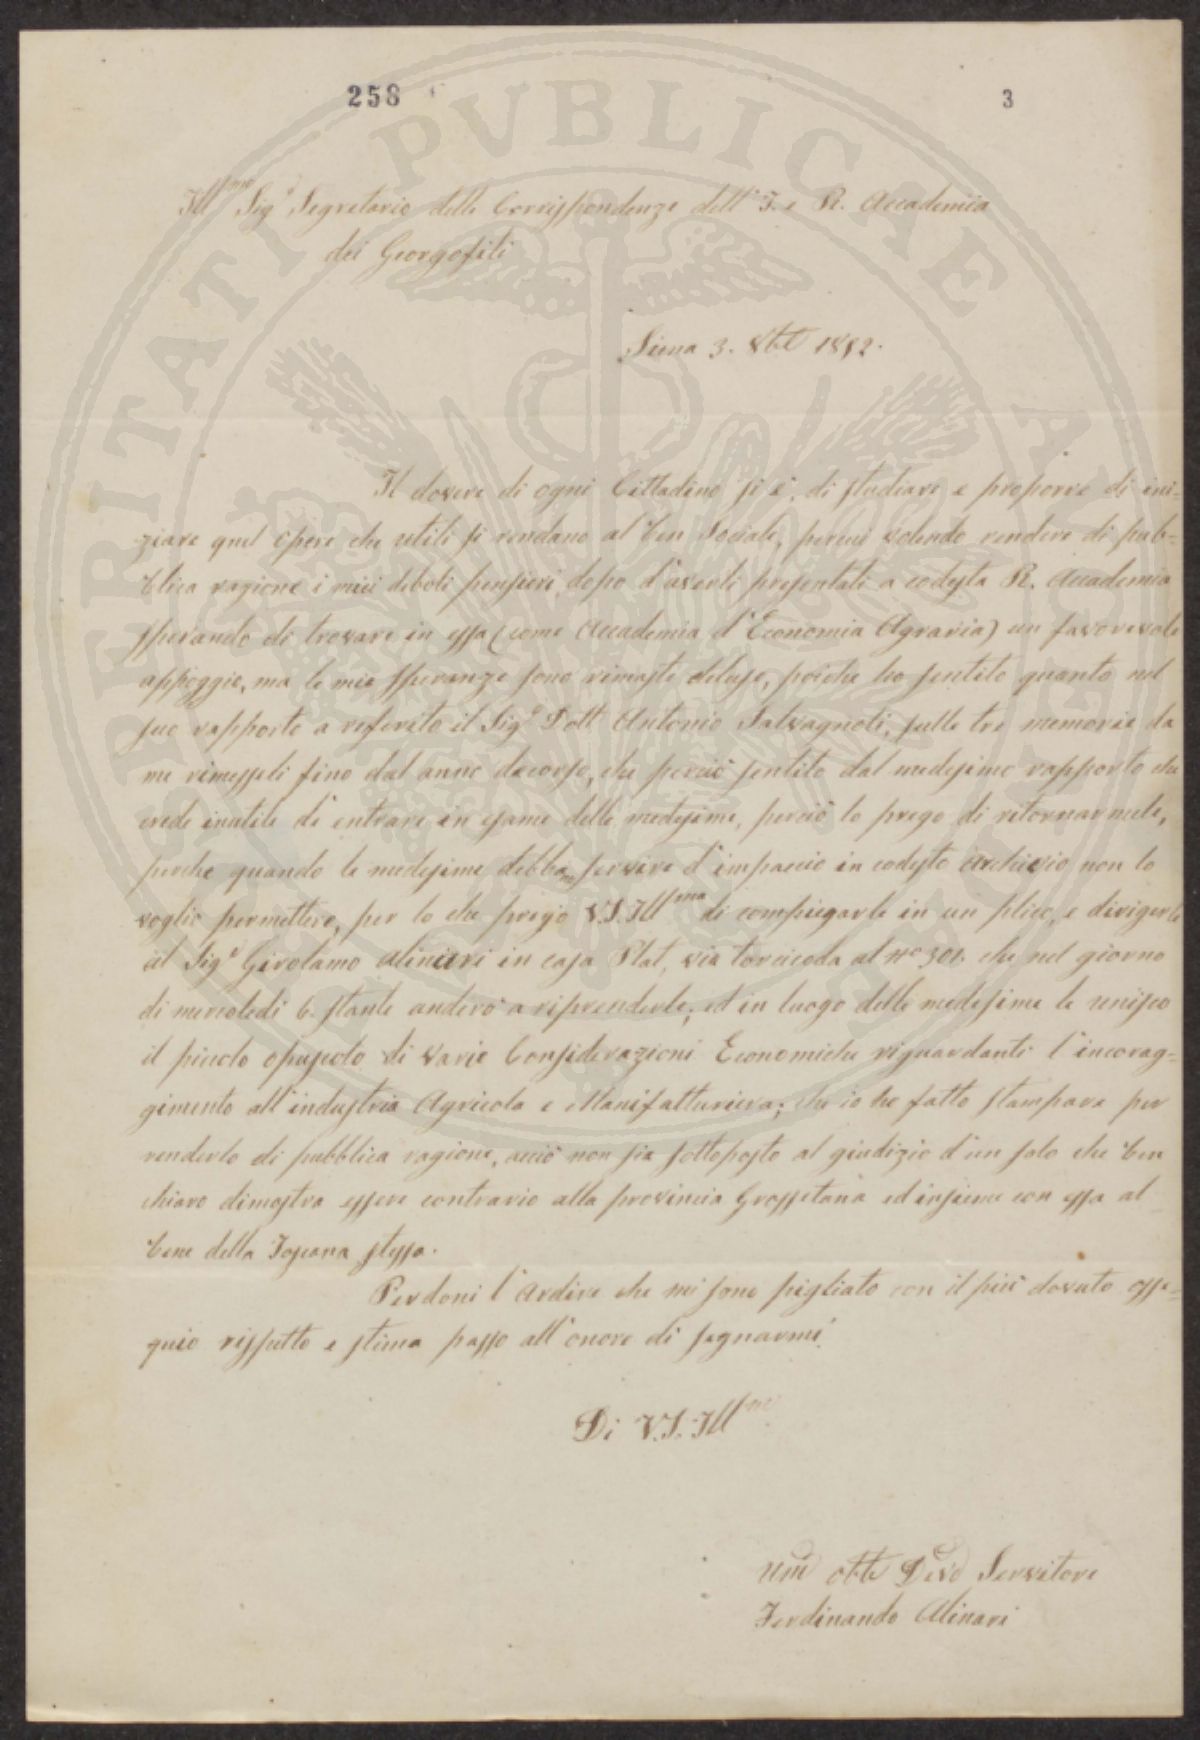 258 3
Ill.mo Sig.e Segretario delle Corrispondenze dell' I. e R. Accademia
dei Georgofili
Siena 3. 8bre 1852.
Il dovere di ogni Cittadino si è, di studiare e proporre di ini=
ziare quel opere che utili si rendano al ben Sociale, perciò volendo rendere di pub=
blica ragione i miei deboli pensieri, dopo d'averli presentati a codesta R. Accademia
sperando di trovare in essa (come Accademia d'Economia Agraria) un favorevole
appoggio, ma le mie speranze sono rimaste deluse, poiche ho sentito quanto nel
suo rapporto a referito il Sig.e Dott Antonio Salvagnoli, sulle tre memorie da
me rimesseli fino dal anno decorso, che perciò sentito dal medesimo rapporto che
crede inutile di entrare in esame delle medesime, perciò lo prego di ritornarmele,
perche quando le medesime debbano servire d'impaccio in codesto Archivio non lo
voglio permettere, per lo che prego V.S. Ill.ma di compiegarle in un plico, e dirigerle
al Sig.e Girolamo Alinari in casa Plat, via Torcicoda al No 301. che nel giorno
di mercoledi 6. stante anderò a riprenderle; ed in luogo delle medesime le unisco
il piccolo opuscolo di Varie Considerazioni Economiche riguardanti l'incorag=
gimento all'industria Agricola e Manifatturiera; che io ho fatto stampare per
renderlo di pubblica ragione, acciò non sia sottoposto al giudizio d'un solo che ben
chiaro dimostra essere contrario alla provincia Grossetana ed insieme con essa al
bene della Toscana stessa.
Perdoni l'Ardire che mi sono pigliato con il più dovuto osse=
quio rispetto e stima passo all'onore di segnarmi
Di V.S. Ill.me
Umo obbo Devo Servitore
Ferdinando Alinari
PROSPERITATI PVBLICAE AVGENDAE